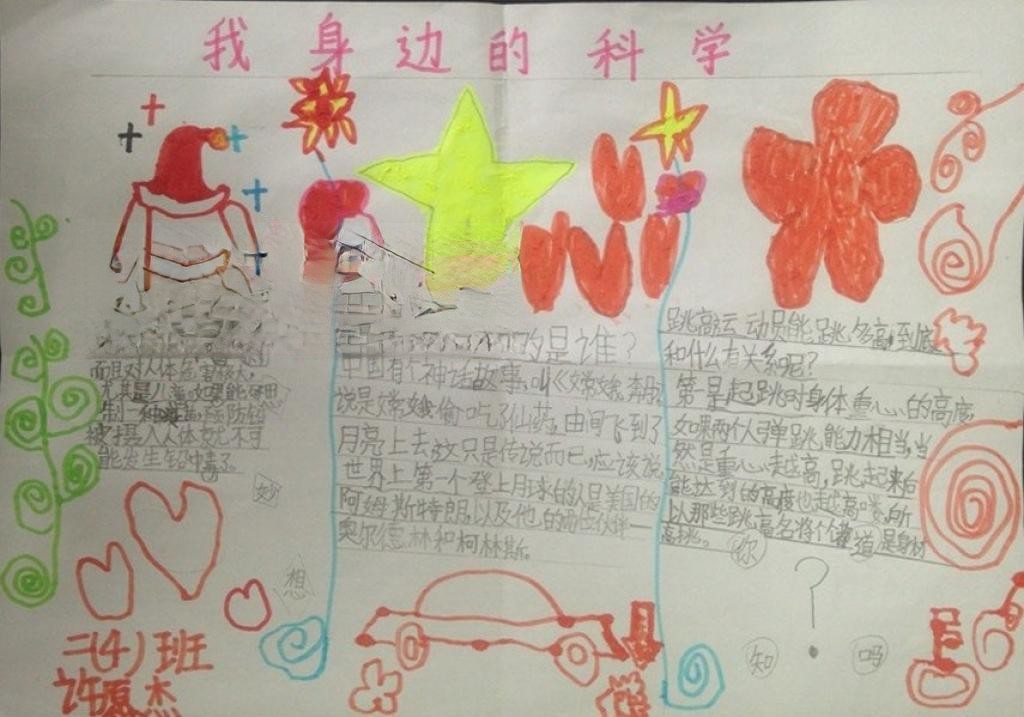 我身边的科学
而且对人体危害较大,
尤其是儿童。如果能研
制一种
被摄入人体就不可
能发生铅中毒了
妙
想
的是谁?
中国有个神话故事,叫《嫦娥奔月》
说是嫦娥偷吃了仙药,由间飞到了
月亮上去,这只是传说而已,应该说
世界上第一个登上月球的人是美国的
阿姆斯特朗,以及他的两位伙伴——
奥尔德林和柯林斯。
跳高运动员能跳多高,到底
和什么有关系呢?
第一是起跳时身体重心的高度
如果两个人弹跳能力相当,当
然是重心越高,跳起来
能达到的高度也越高喽,所
以那些跳高名将个个都道是身材
高挑。
你
知
?
吗
二(4)班
许愿杰